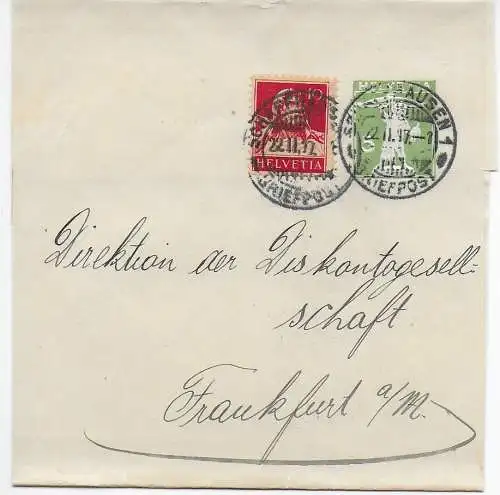 HELVETIA
SCHAFFHAUSEN 1
22.II.17.
BRIEFPOST
HELVETIA
22.II.17.
BRIEFPOST
Direktion der Diskontogesell-
schaft
Frankfurt a/M.